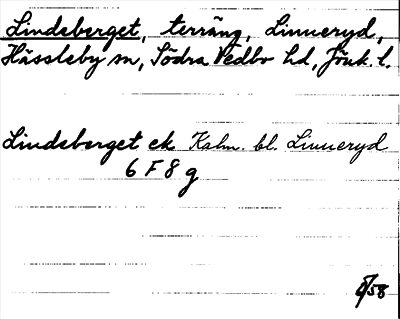 Lindeberget, terräng, Linneryd,
Hässleby sn, Södra Vedbo hd, Jönk. l.
Lindeberget ek Kalm. bl. Linneryd
6 F 8 g
/58